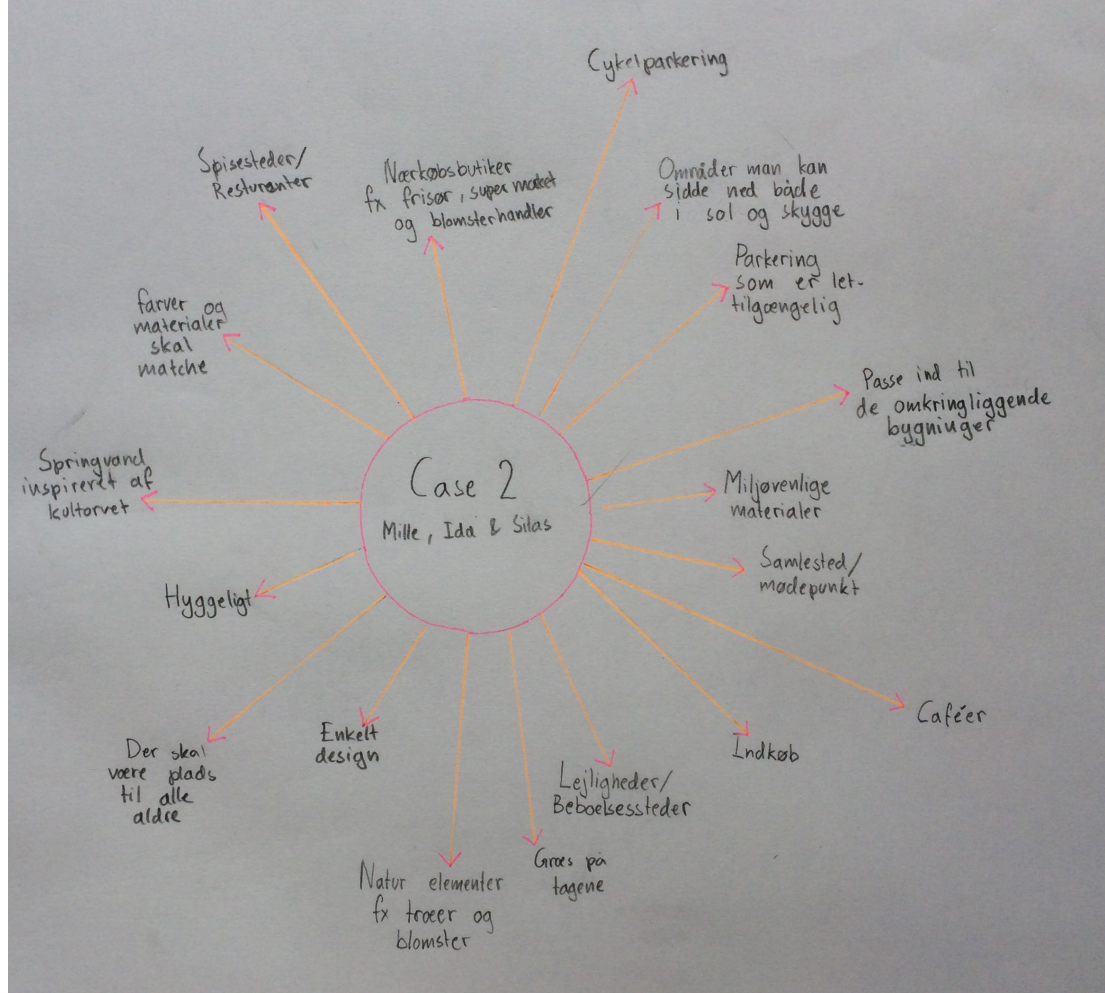 Case 2
Mille, Ida & Silas
Cykelparkering
Områder man kan
sidde ned både
i sol og skygge
Parkering
som er let-
tilgængelig
Passe ind til
de omkringliggende
bygninger
Miljøvenlige
materialer
Samlested/
mødepunkt
Caféer
Indkøb
Lejligheder/
Beboelsessteder
Græs på
tagene
Natur elementer
fx træer og
blomster
Enkelt
design
Der skal
være plads
til alle
aldre
Hyggeligt
Springvand
inspireret af
kultorvet
farver og
materialer
skal
matche
Spisesteder/
Resturanter
Nærkøbsbutiker
fx frisør, super maket
og blomsterhandler